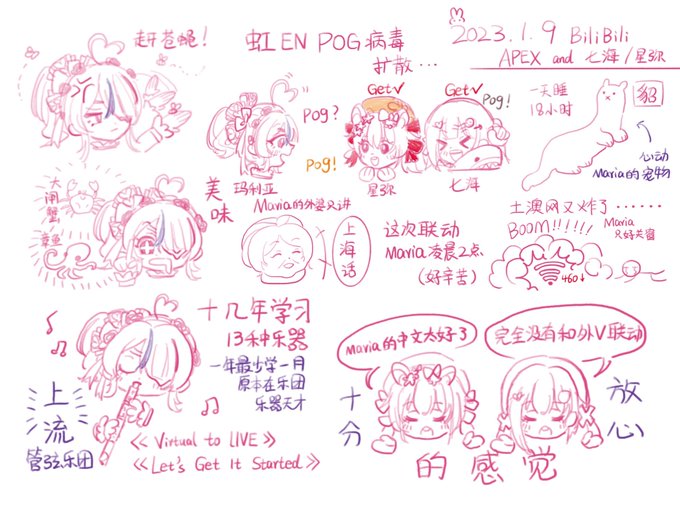 赶苍蝇!
虹EN POG病毒
扩散…
2023.1.9 BiliBili
APEX and 七海/星弥
Pog?
Pog!
玛利亚
Get✓
星弥
Get✓
Pog!
七海
一天睡
18小时
貂
心动
Maria的宠物
大闸蟹
章鱼
美味
Maria的外婆只讲
上海话
这次联动
Maria凌晨2点
(好辛苦)
土澳网又炸了……
BOOM!!!!!!
Maria
只好关窗
460↓
十几年学习
13种乐器
一年最少学一月
原本在乐团
乐器天才
上流
管弦乐团
《Virtual to LIVE》
《Let's Get It Started》
Maria的中文太好了
完全没有和外V联动
十分
放心
的感觉